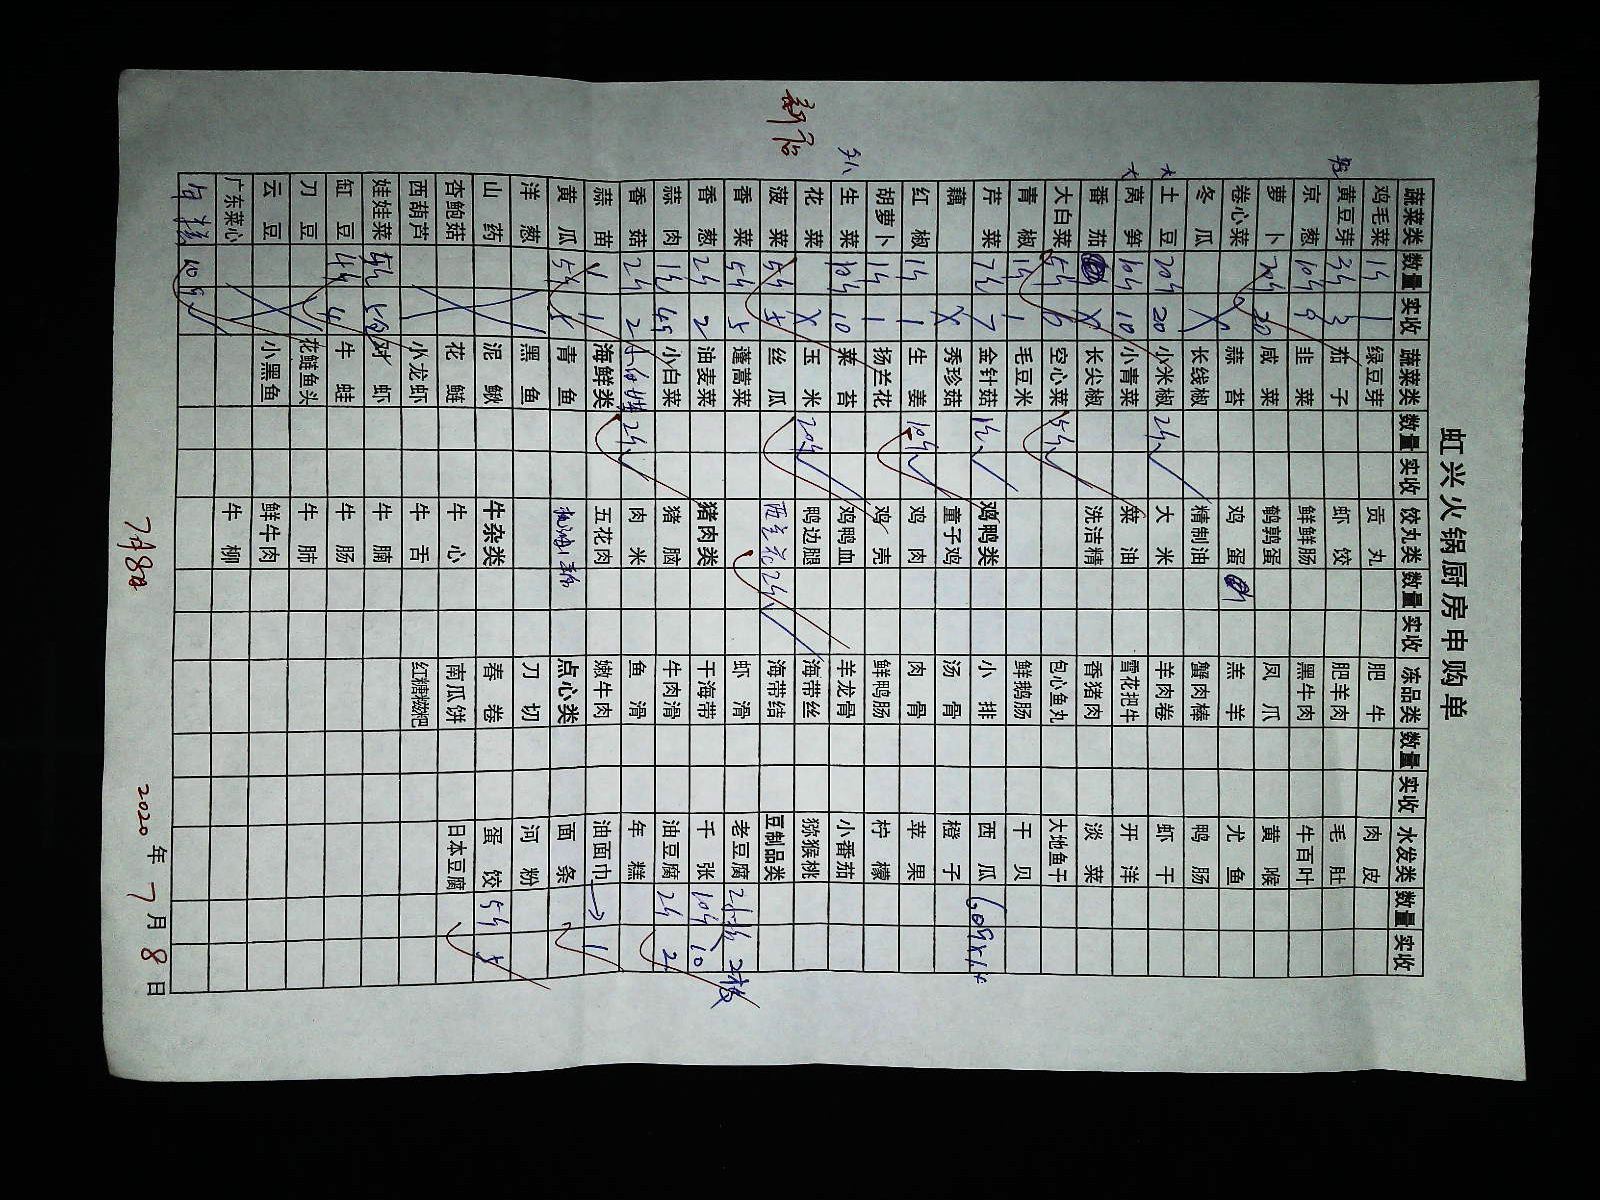 虹兴火锅厨房申购单
蔬菜类 数量 实收 蔬菜类 数量 实收 饺丸类 数量 实收 冻品类 数量 实收 水发类 数量 实收
鸡毛菜 1斤 1 绿豆芽 贡丸 肥牛 肉皮
黄豆芽 3斤 3 茄子 虾饺 肥羊肉 毛肚
京葱 10斤 9 韭菜 鲜鲜肠 黑牛肉 牛百叶
萝卜 20斤 20 咸菜 鹌鹑蛋 凤爪 黄喉
卷心菜 蒜苔 鸡蛋 羔羊 尤鱼
冬瓜 长线椒 精制油 蟹肉棒 鸭肠
大 土豆 20斤 20 小米椒 2斤 大米 羊肉卷 虾干
大 莴笋 10斤 10 小青菜 菜油 雪花把牛 开洋
番茄 长尖椒 洗洁精 香猪肉 淡菜
大白菜 5斤 6 空心菜 5斤 包心鱼丸 大地鱼干
青椒 1斤 1 毛豆米 鲜鹅肠 干贝
芹菜 7斤 7 金针菇 1斤 鸡鸭类 小排 西瓜
藕 秀珍菇 童子鸡 汤骨 橙子
红椒 1斤 1 生姜 10斤 鸡肉 肉骨 苹果
胡萝卜 1斤 1 扬兰花 鸡壳 鲜鸭肠 柠檬
生菜 10斤 10 菜苔 鸡鸭血 羊龙骨 小番茄
花菜 玉米 20斤 鸭边腿 海带丝 猕猴桃
新店 菠菜 5斤 5 丝瓜 西兰花 2斤 海带结 豆制品类
香菜 5斤 5 蓬蒿菜 虾滑 老豆腐 2板 2板
香葱 2斤 2 油麦菜 猪肉类 干海带 千张 10斤 10
蒜肉 小白菜 猪脑 牛肉滑 油豆腐 2斤 2
香菇 2斤 2 2斤 肉米 鱼滑 年糕
蒜苗 1 海鲜类 五花肉 嫩牛肉 油面巾 1
黄瓜 5斤 5 青鱼 点心类 面条
洋葱 黑鱼 刀切 河粉
山药 泥鳅 牛杂类 春卷 蛋饺 5斤 5
杏鲍菇 花鲢 牛心 南瓜饼 日本豆腐
西葫芦 小龙虾 牛舌 红糖糍粑
娃娃菜 对虾 牛腩
缸豆 4斤 4 牛蛙 牛肠
刀豆 花鲢鱼头 牛肺
云豆 小黑鱼 鲜牛肉
广东菜心 牛柳
10 9
7月8日 2020年7月8日